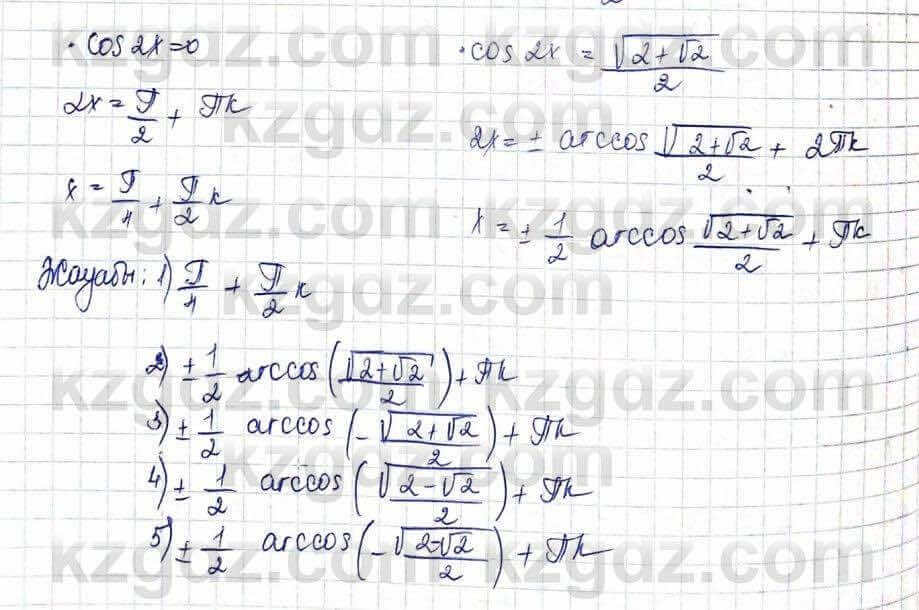 • cos 2x = 0
2x = П/2 + Пk
x = П/4 + П/2 k
• cos 2x = √(2+√2)/2
2x = ± arccos √(2+√2)/2 + 2Пk
x = ± 1/2 arccos √(2+√2)/2 + Пk
Жауабы: 1) П/4 + П/2 k
2) ± 1/2 arccos (√(2+√2)/2) + Пk
3) ± 1/2 arccos (-√(2+√2)/2) + Пk
4) ± 1/2 arccos (√(2-√2)/2) + Пk
5) ± 1/2 arccos (-√(2-√2)/2) + Пk
kzgdz.com kzgdz.com
kzgdz.com
kzgdz.com kzgdz.com
kzgdz.com
kzgdz.com kzgdz.com
kzgdz.com
kzgdz.com kzgdz.com